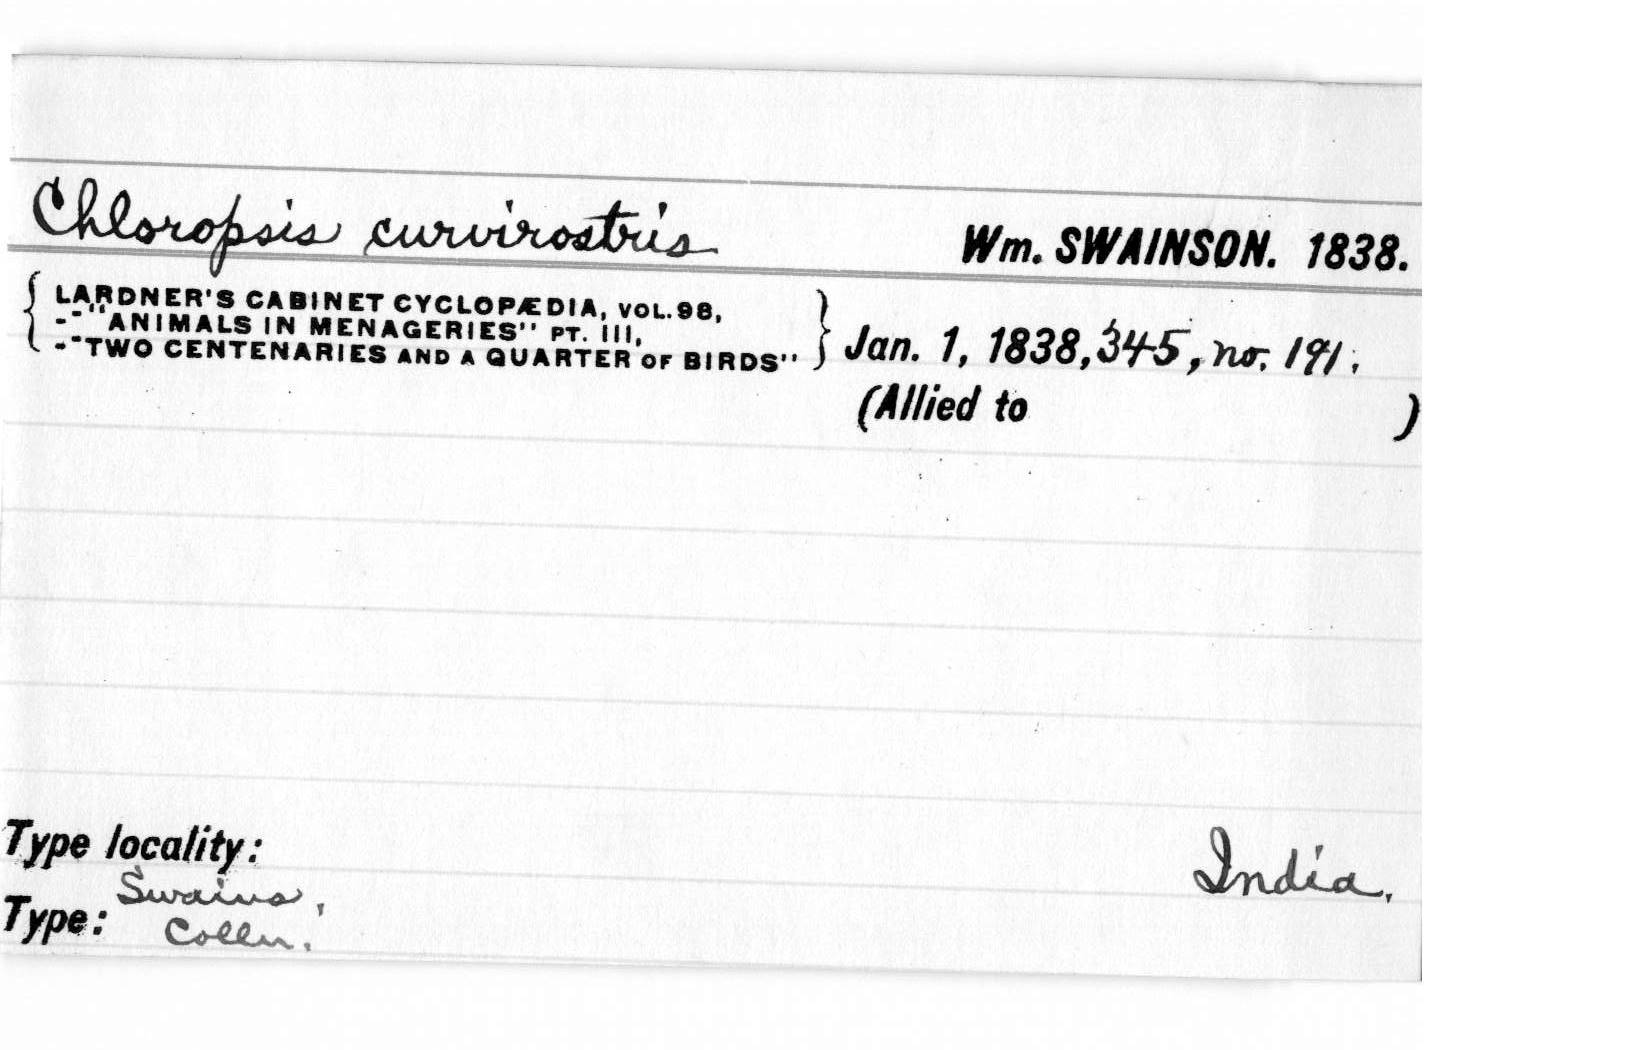 Chloropsis curvirostris Wm. SWAINSON. 1838.
{ LARDNER'S CABINET CYCLOPÆDIA, VOL. 98,
--"ANIMALS IN MENAGERIES" PT. III,
-"TWO CENTENARIES AND A QUARTER OF BIRDS" } Jan. 1, 1838, 345, no. 191.
(Allied to )
Type locality: India.
Type: Swains.
Colln.